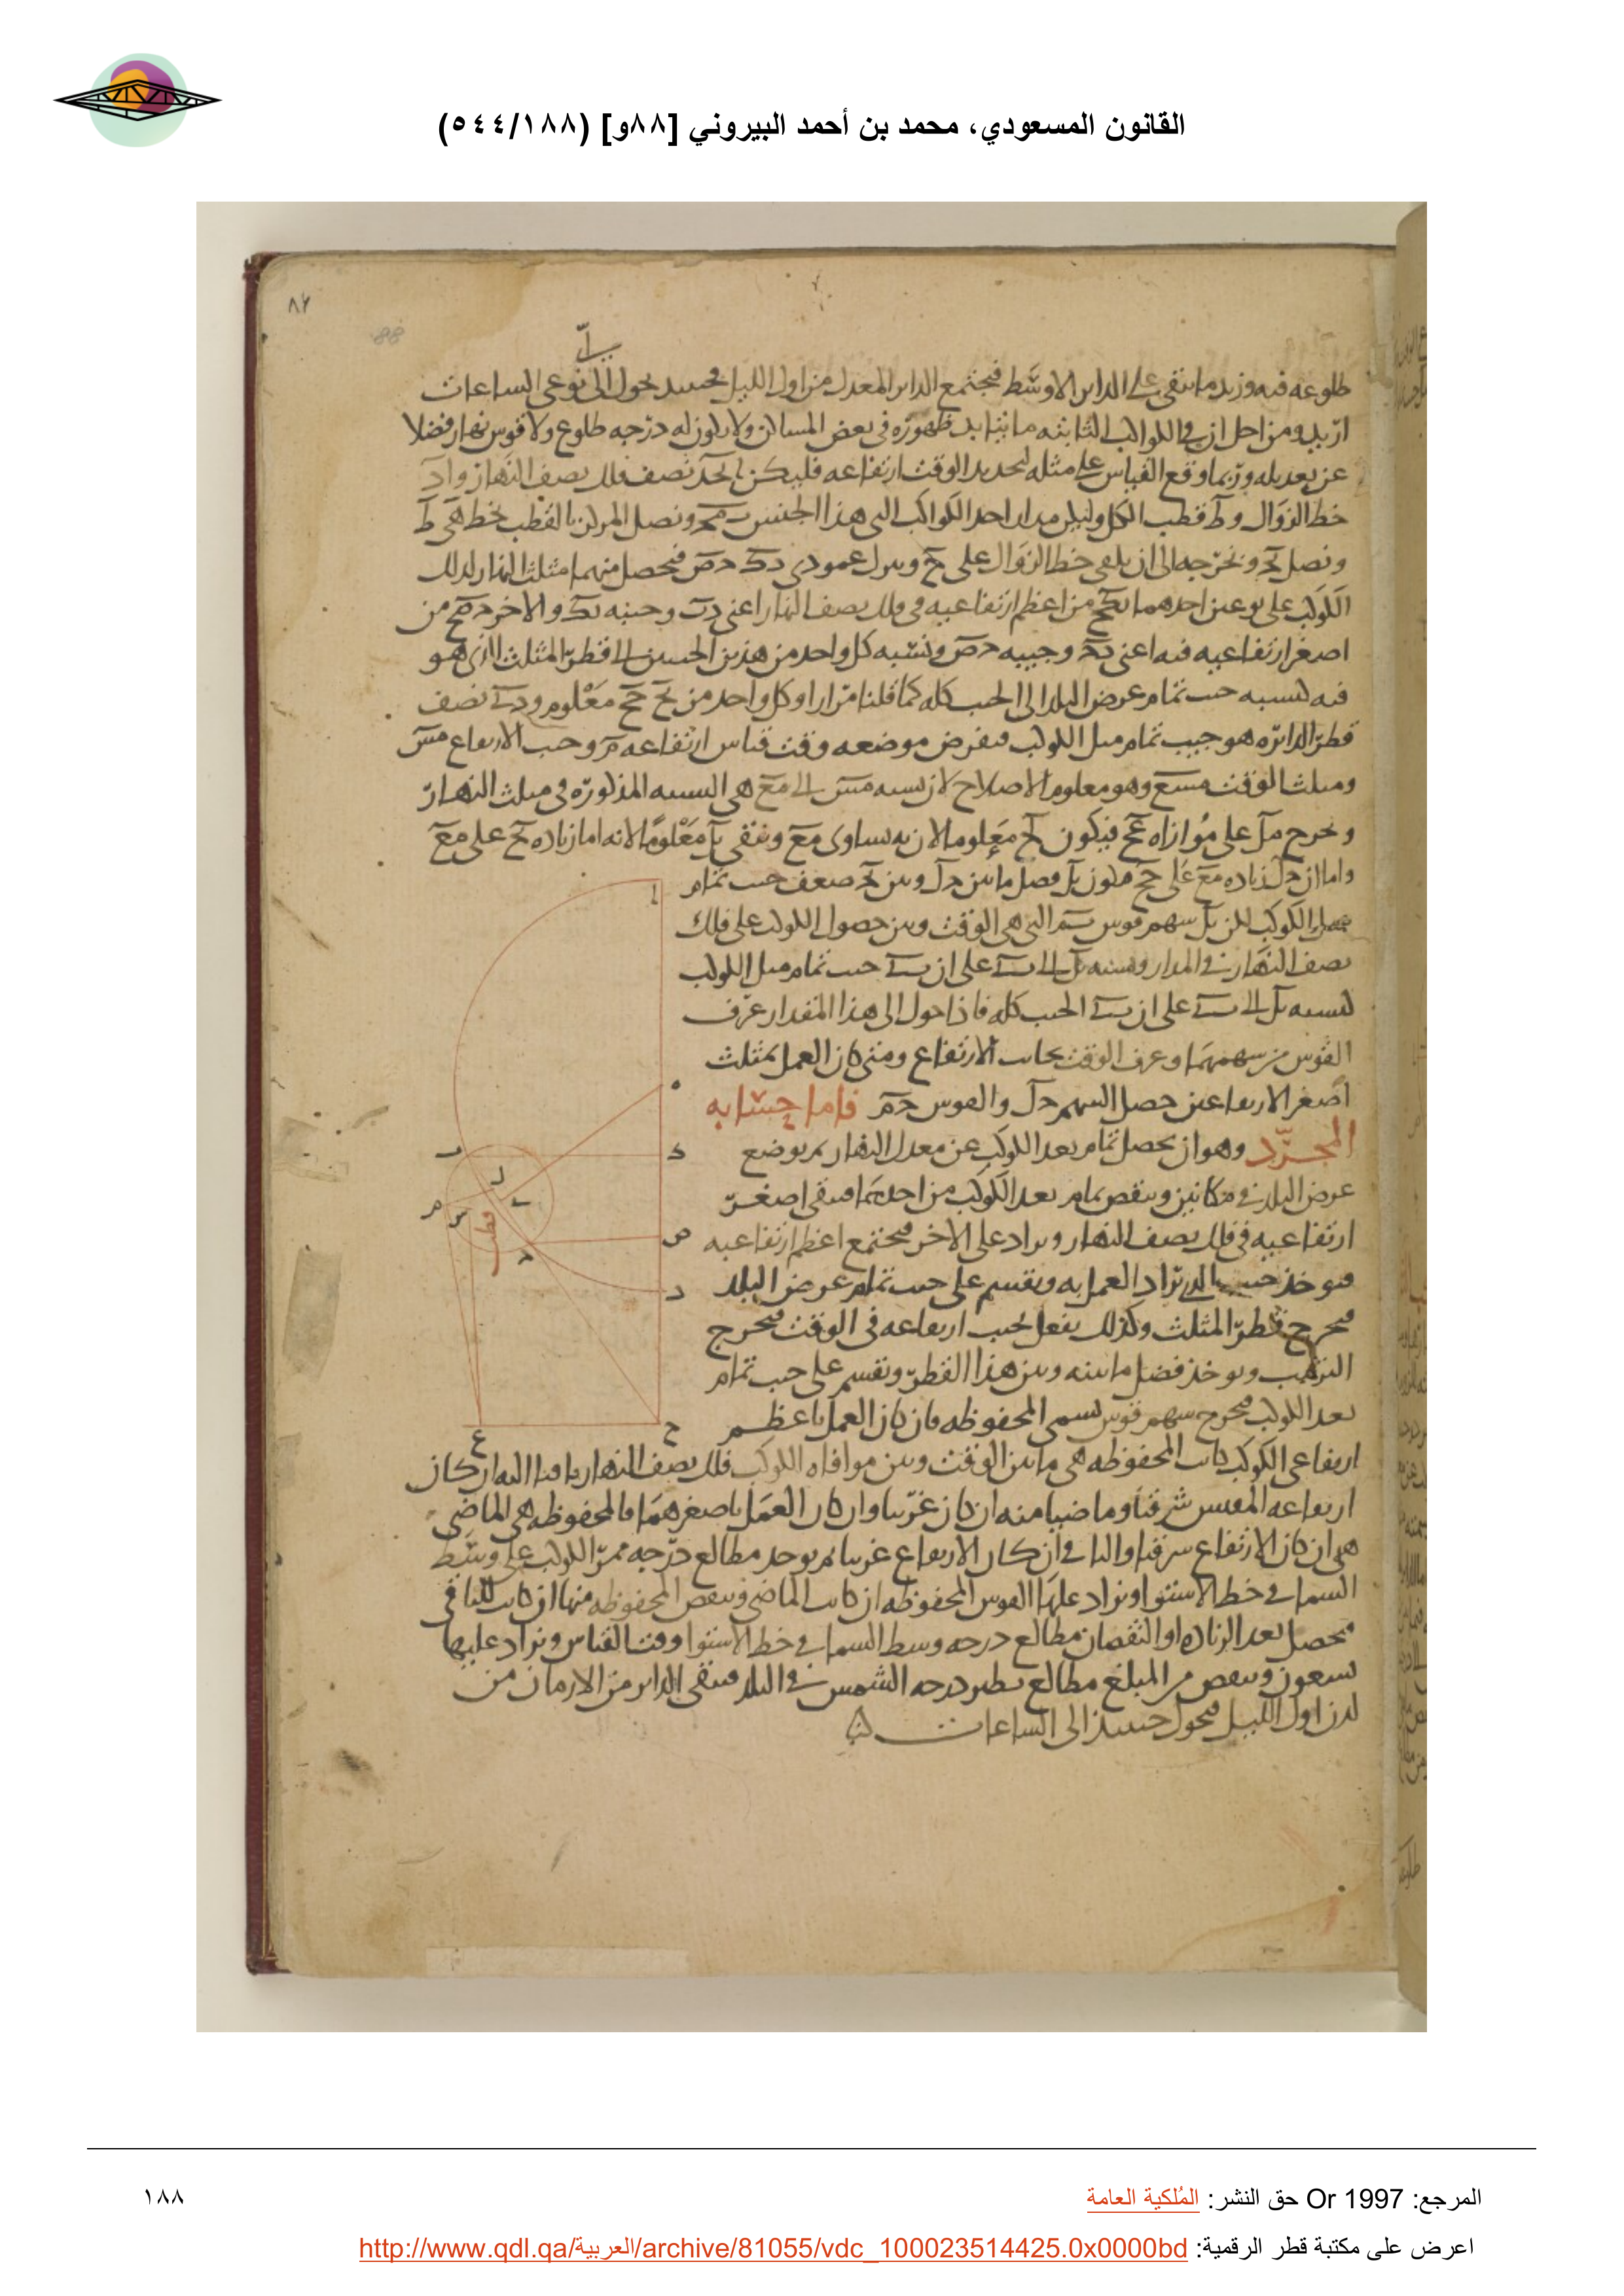 القانون المسعودي، محمد بن أحمد البيروني [٨٨و] (٥٤٤/١٨٨)
٨٢
88
طلوعه فيه وزيد ما بقى على الداير الاوسط فيجتمع الداير المعدل من اول الليل فحينئذ يحول الى نوعى الساعات
اريد ومن اجل ان في الكواكب الثابته ما يتابد ظهوره في بعض المساكن ولا يكون له درجه طلوع ولا قوس نهار فضلا
عن تعديله وربما وقع القياس على مثله لتحديد الوقت ارتفاعه فليكن ا بحد نصف فلك نصف النهار و ا د
خط الزوال و ط قطب الكل وليكن مدار احد الكواكب التي هذا الجنس ونصل المركز بالقطب بخط
ونصل ونخرجه الى ان يلقى خط الزوال على ح وننزل عمودى فيحصل منهما مثلث النهار لذلك
الكوكب على نوعين احدهما من اعظم ارتفاعيه في فلك نصف النهار اعنى وجيبه والاخر من
اصغر ارتفاعيه فيه اعنى وجيبه ونسبه كل واحد من هذين الجيبين الى قطر المثلث الذى هو
فيه كنسبه جيب تمام عرض البلد الى الجيب كله كما قلنا مرارا وكل واحد من معلوم و نصف
قطر الدائره هو جيب تمام ميل الكوكب فنفرض موضعه وقت قياس ارتفاعه م وجيب الارتفاع مس
ومثلث الوقت مسع وهو معلوم الاضلاع لان نسبه مس الى مع هي النسبه المذكوره في مثلث النهار
ونخرج مل على موازاه فيكون معلوما لانه يساوى مع ويبقى معلوما لانه اما زياده على مع
واما ان زياده مع على فيكون فضل ما بين وبين ضعف جيب تمام
ميل الكوكب لكن سهم قوس التي هي الوقت وبين حصول الكوكب على فلك
نصف النهار في المدار ونسبه الى على ان جيب تمام ميل الكوكب
كنسبه الى على ان الجيب كله فاذا حول الى هذا المقدار عرف
القوس من سهمها وعرف الوقت بجانب الارتفاع ومتى كان العمل بمثلث
اصغر الارتفاعين حصل السهم والقوس فاما حسابه
المجرد وهو ان يحصل تمام بعد الكوكب عن معدل النهار ثم يوضع
عرض البلد في مكانين وينقص تمام بعد الكوكب من احدهما فيبقى اصغر
ارتفاعيه في فلك نصف النهار ويزاد على الاخر فيجتمع اعظم ارتفاعيه
فيوخذ جيب الذي يراد العمل به ويقسم على جيب تمام عرض البلد
فيخرج قطر المثلث وكذلك يفعل بجيب ارتفاعه في الوقت فيخرج
الترتيب ويوخذ فضل ما بينه وبين هذا القطر ويقسم على جيب تمام
بعد الكوكب فيخرج سهم قوس تسمى المحفوظه فان كان العمل باعظم
ارتفاعى الكوكب كانت المحفوظه هي ما بين الوقت وبين موافاه الكوكب فلك نصف النهار باقيا اليه ان كان
ارتفاعه المقيس شرقيا وماضيا منه ان كان غربيا وان كان العمل باصغرهما فالمحفوظه هي الماضى
هي ان كان الارتفاع شرقيا والباقى ان كان الارتفاع غربيا ثم يوخذ مطالع درجه ممر الكوكب على وسط
السما في خط الاستوا ويزاد عليها القوس المحفوظه ان كانت الماضى وينقص المحفوظه منها ان كانت للباقى
فيحصل بعد الزياده او النقصان مطالع درجه وسط السما في خط الاستوا وقت القياس ويزاد عليها
تسعون وينقص من المبلغ مطالع نظير درجه الشمس في البلد فيبقى الداير من الازمان من
لدن اول الليل فيحول حينئذ الى الساعات
المرجع: Or 1997 حق النشر: المُلكية العامة
١٨٨
اعرض على مكتبة قطر الرقمية: http://www.qdl.qa/العربية/archive/81055/vdc_100023514425.0x0000bd